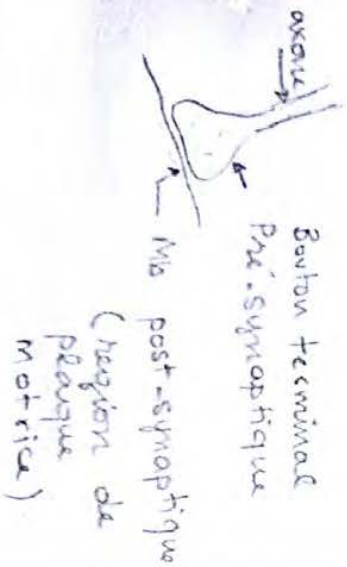 axone
Bouton terminal
Pré-synaptique
Mb post-synaptique
(région de
plaque
motrice)